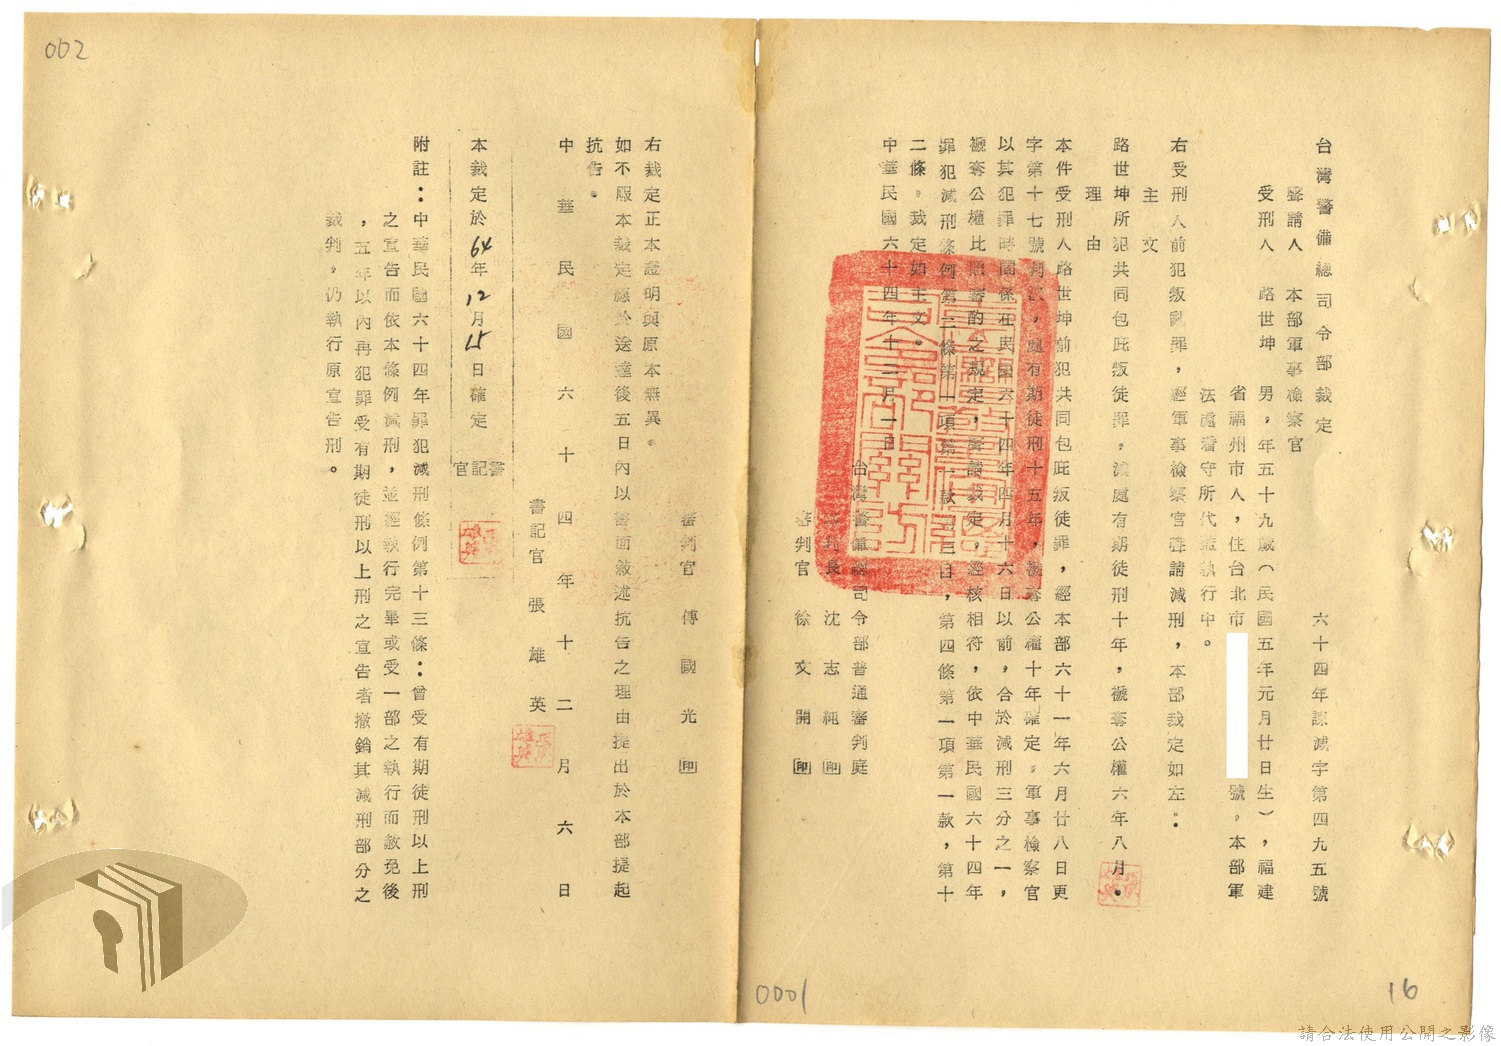 台灣警備總司令部裁定
六十四年諫減字第四九五號
聲請人　本部軍事檢察官
受刑人　路世坤　男，年五十九歲（民國五年元月廿日生），福建
省福州市人，住台北市
號。本部軍
法處看守所代監執行中。
右受刑人前犯叛亂罪，經軍事檢察官聲請減刑，本部裁定如左：
主文
路世坤所犯共同包庇叛徒罪，減處有期徒刑十年，褫奪公權六年八月。
理由
本件受刑人路世坤前犯共同包庇叛徒罪，經本部六十一年六月廿八日更
字第十七號判，處有期徒刑十五年，褫奪公權十年確定。軍事檢察官
以其犯罪時間係在民國六十四年四月十六日以前，合於減刑三分之一，
褫奪公權比照審酌之規定，聲請裁定，經核相符，依中華民國六十四年
罪犯減刑條例第二條第一項第一款，第四條第一項第一款，第十
二條。裁定如主文。
中華民國六十四年十二月一日
台灣警備總司令部普通審判庭
審判長　沈志純　印
審判官　徐文開　印
審判官　傅國光　印
右裁定正本證明與原本無異。
如不服本裁定應於送達後五日內以書面敘述抗告之理由提出於本部提起
抗告。
中華民國六十四年十二月六日
書記官　張雄英
本裁定於64年12月15日確定
書記官
附註：中華民國六十四年罪犯減刑條例第十三條：曾受有期徒刑以上刑
之宣告而依本條例減刑，並經執行完畢或受一部之執行而赦免後
，五年以內再犯罪受有期徒刑以上刑之宣告者撤銷其減刑部分之
裁判，仍執行原宣告刑。
002
0001
16
請合法使用公開之影像